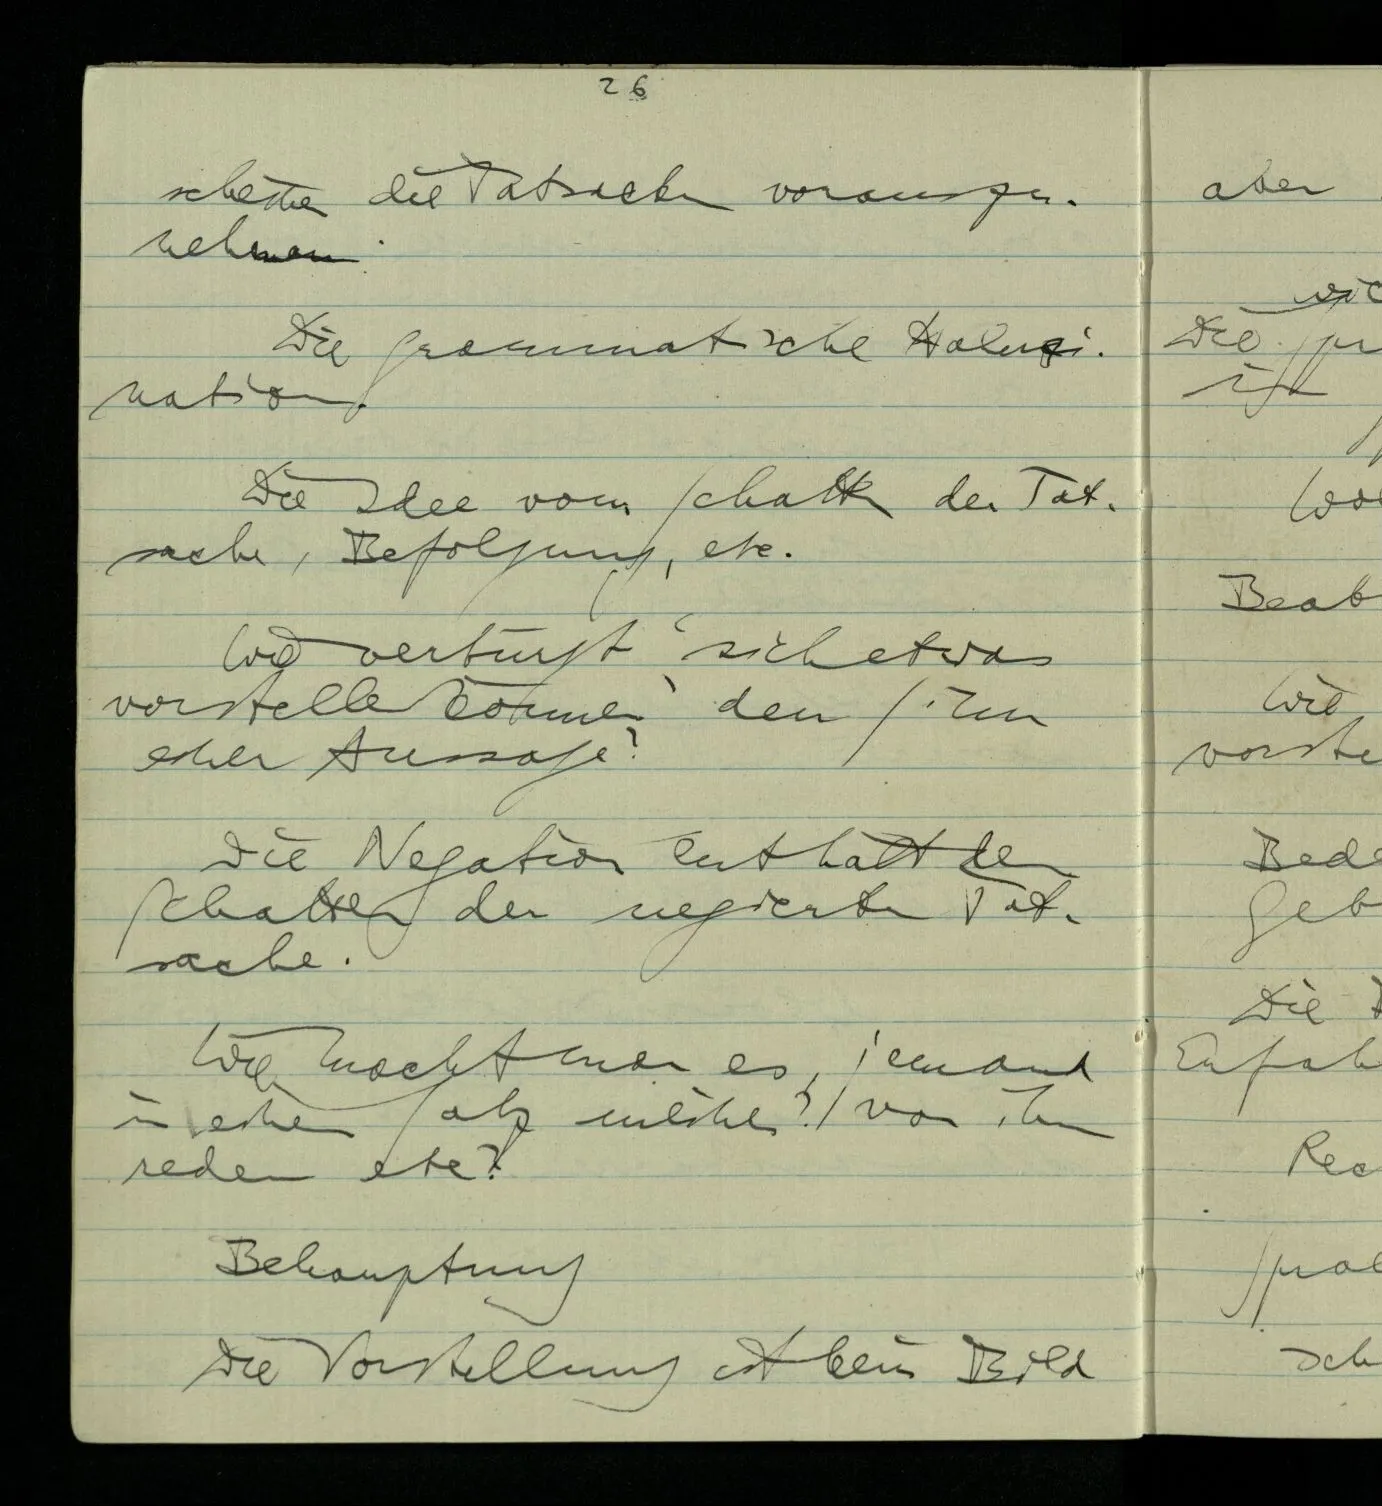 26
scheinen die Tatsachen vorauszu-
nehmen.
Die grammatische Haluzi-
nation.
Die Idee vom Schatten der Tat-
sache, Befolgung, etc.
Wie verbürgt 'sich etwas
vorstellen können' den Sinn
einer Aussage?
Die Negation enthält den
Schatten der negierten Tat-
sache.
Wie macht man es, jemand
in einem Satz meinen? von ihm
reden etc?
Behauptung
Die Vorstellung ist kein Bild
aber
Die
ist
Wie
vorste
Bede
Geb
Die
Erfah